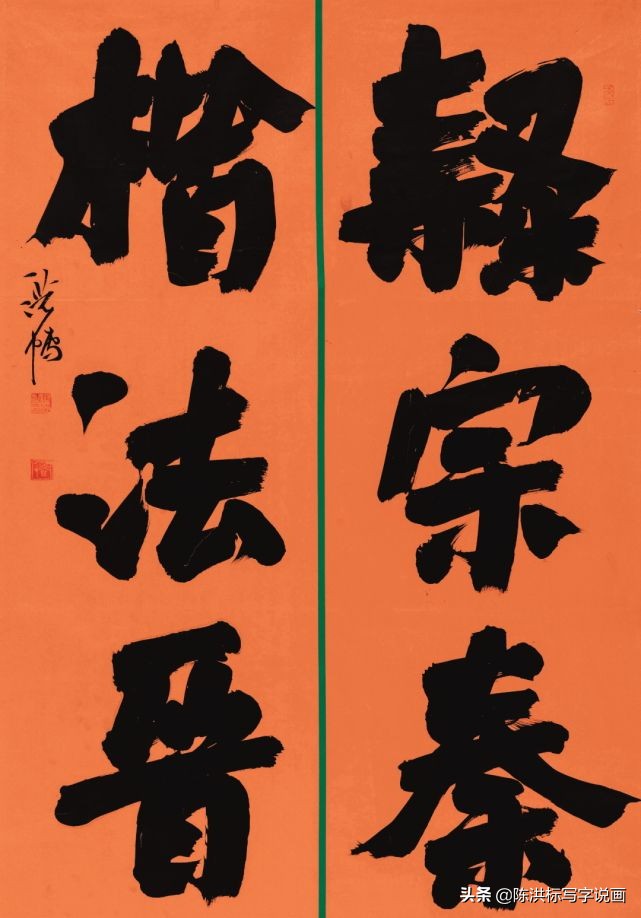 隸宗秦
楷法晋
洪標
头条 @陈洪标写字说画